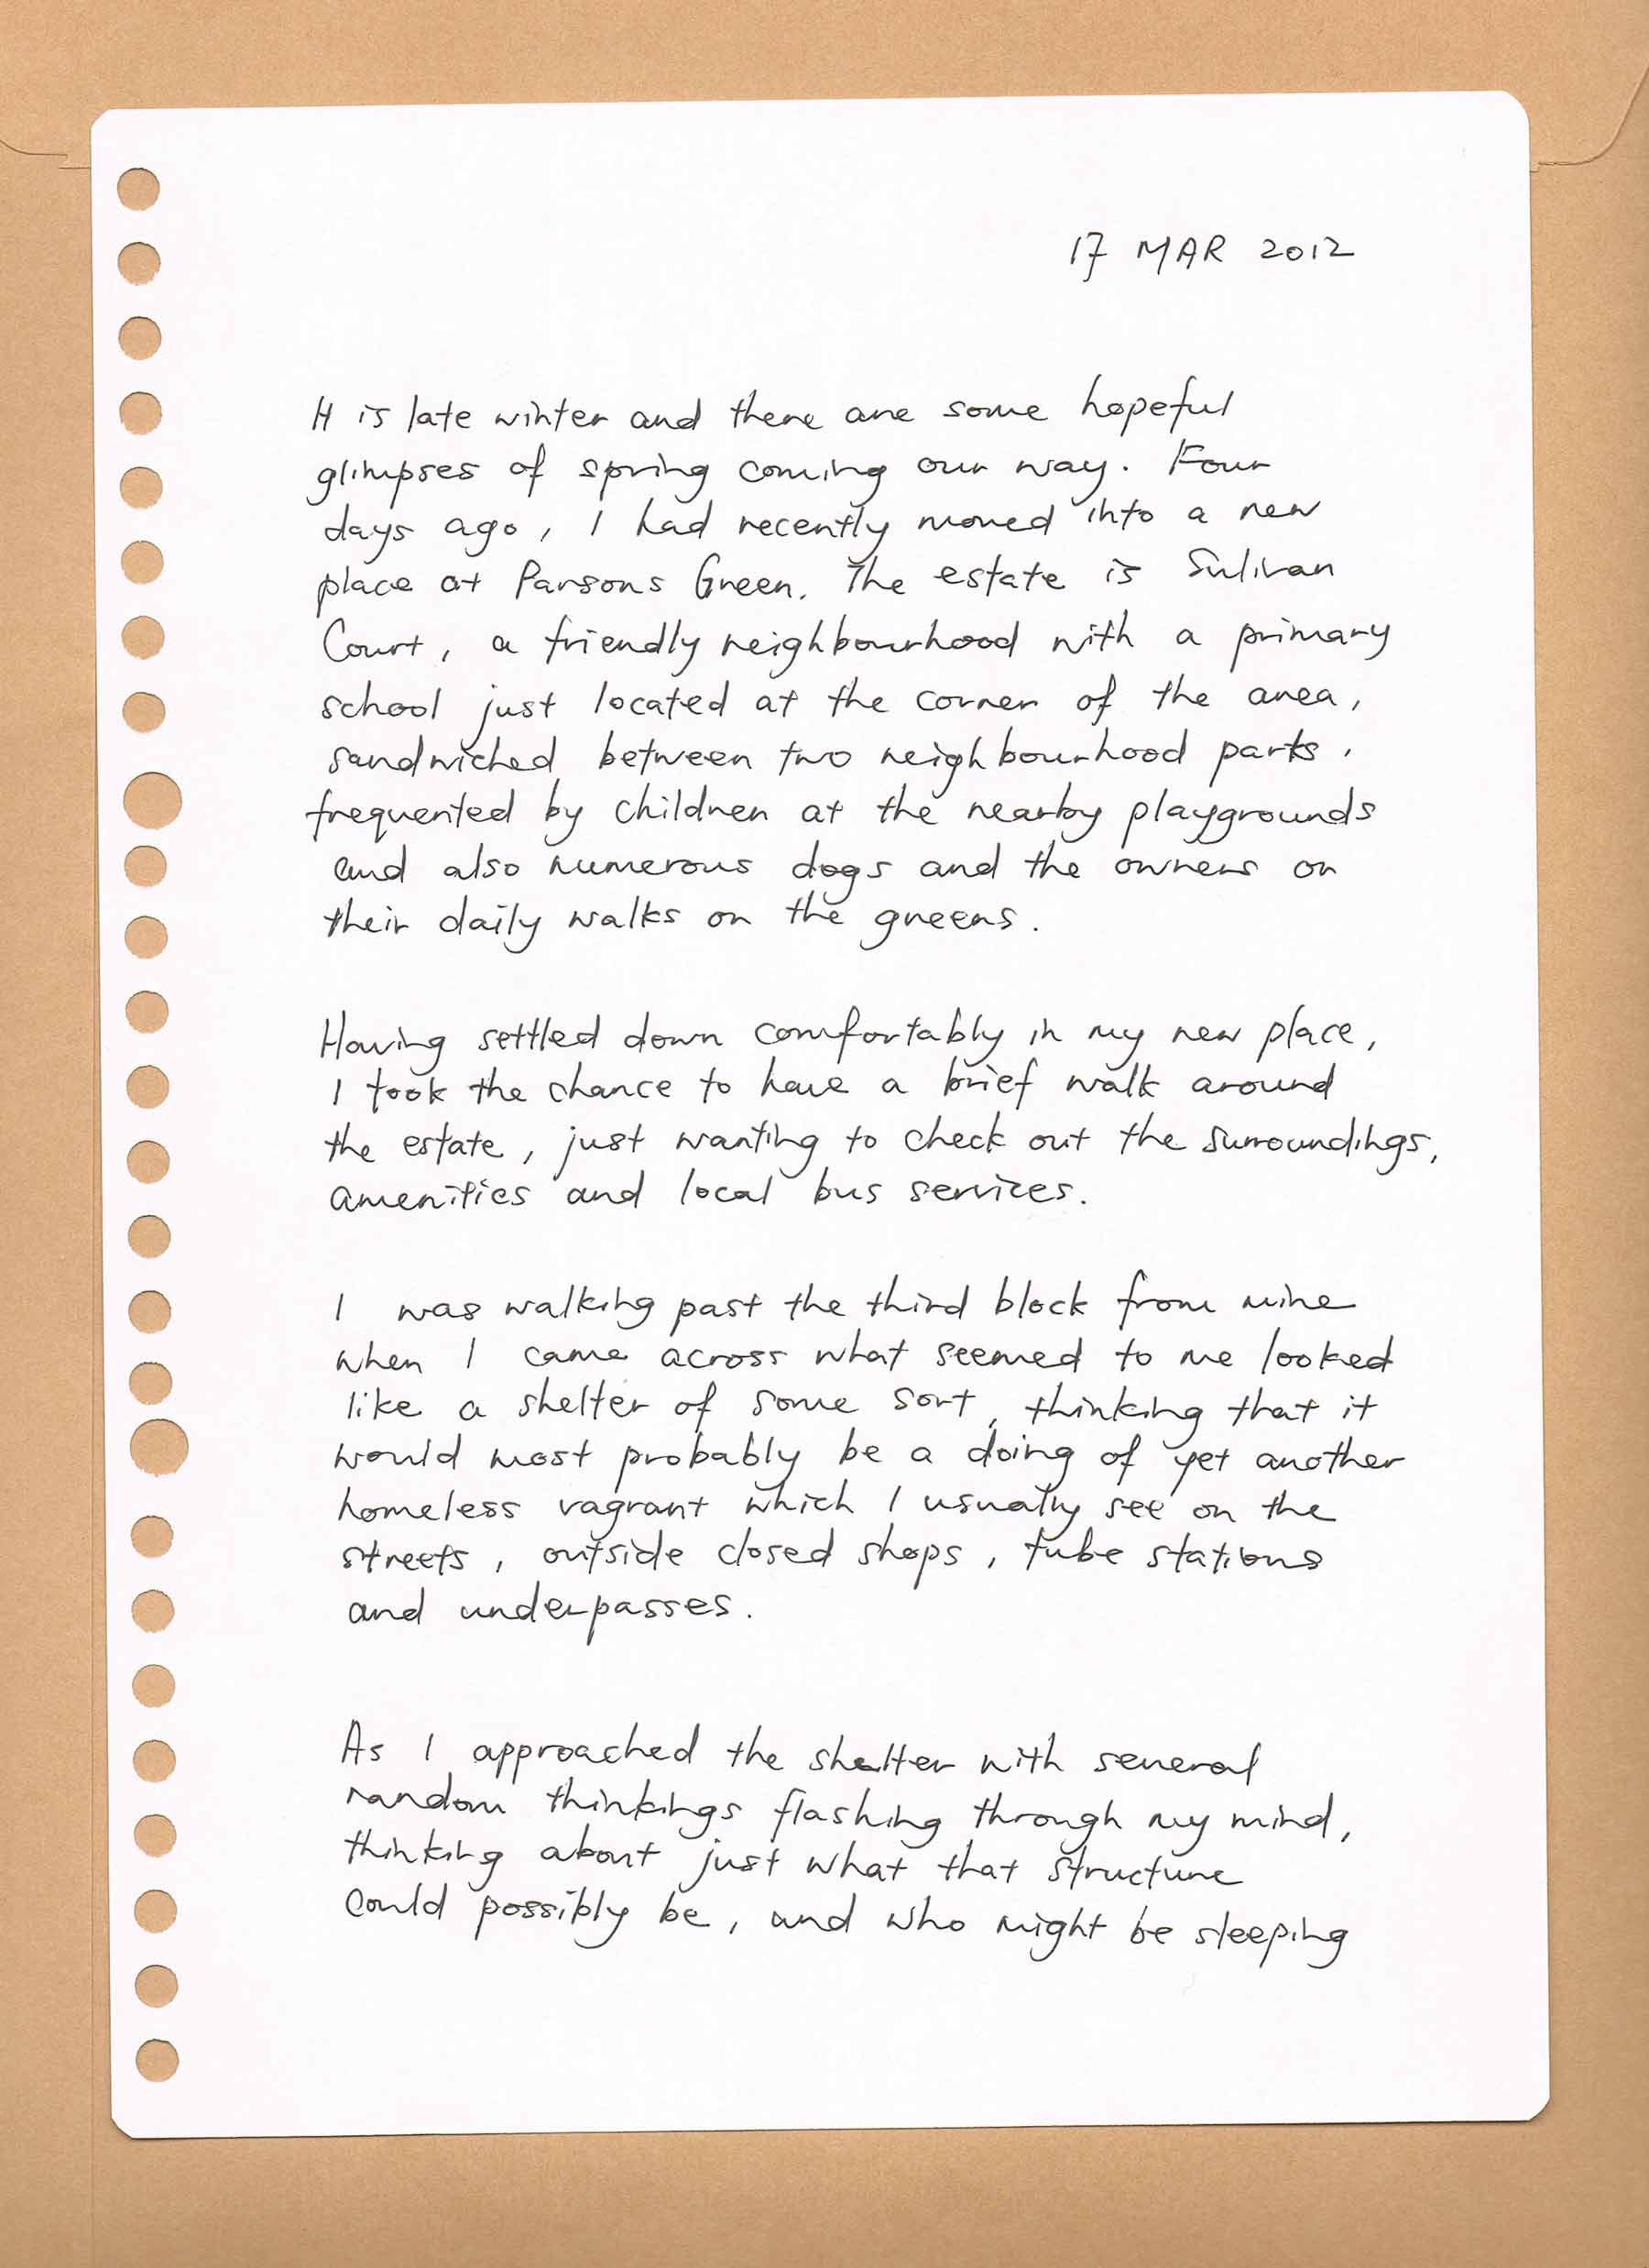 17 MAR 2012
It is late winter and there are some hopeful
glimpses of spring coming our way. Four
days ago, I had recently moved into a new
place at Parsons Green. The estate is Sulivan
Court, a friendly neighbourhood with a primary
school just located at the corner of the area,
sandwiched between two neighbourhood parks,
frequented by children at the nearby playgrounds
and also numerous dogs and the owners on
their daily walks on the greens.
Having settled down comfortably in my new place,
I took the chance to have a brief walk around
the estate, just wanting to check out the surroundings,
amenities and local bus services.
I was walking past the third block from mine
when I came across what seemed to me looked
like a shelter of some sort, thinking that it
would most probably be a doing of yet another
homeless vagrant which I usually see on the
streets, outside closed shops, tube stations
and underpasses.
As I approached the shelter with several
random thinkings flashing through my mind,
thinking about just what that structure
could possibly be, and who might be sleeping